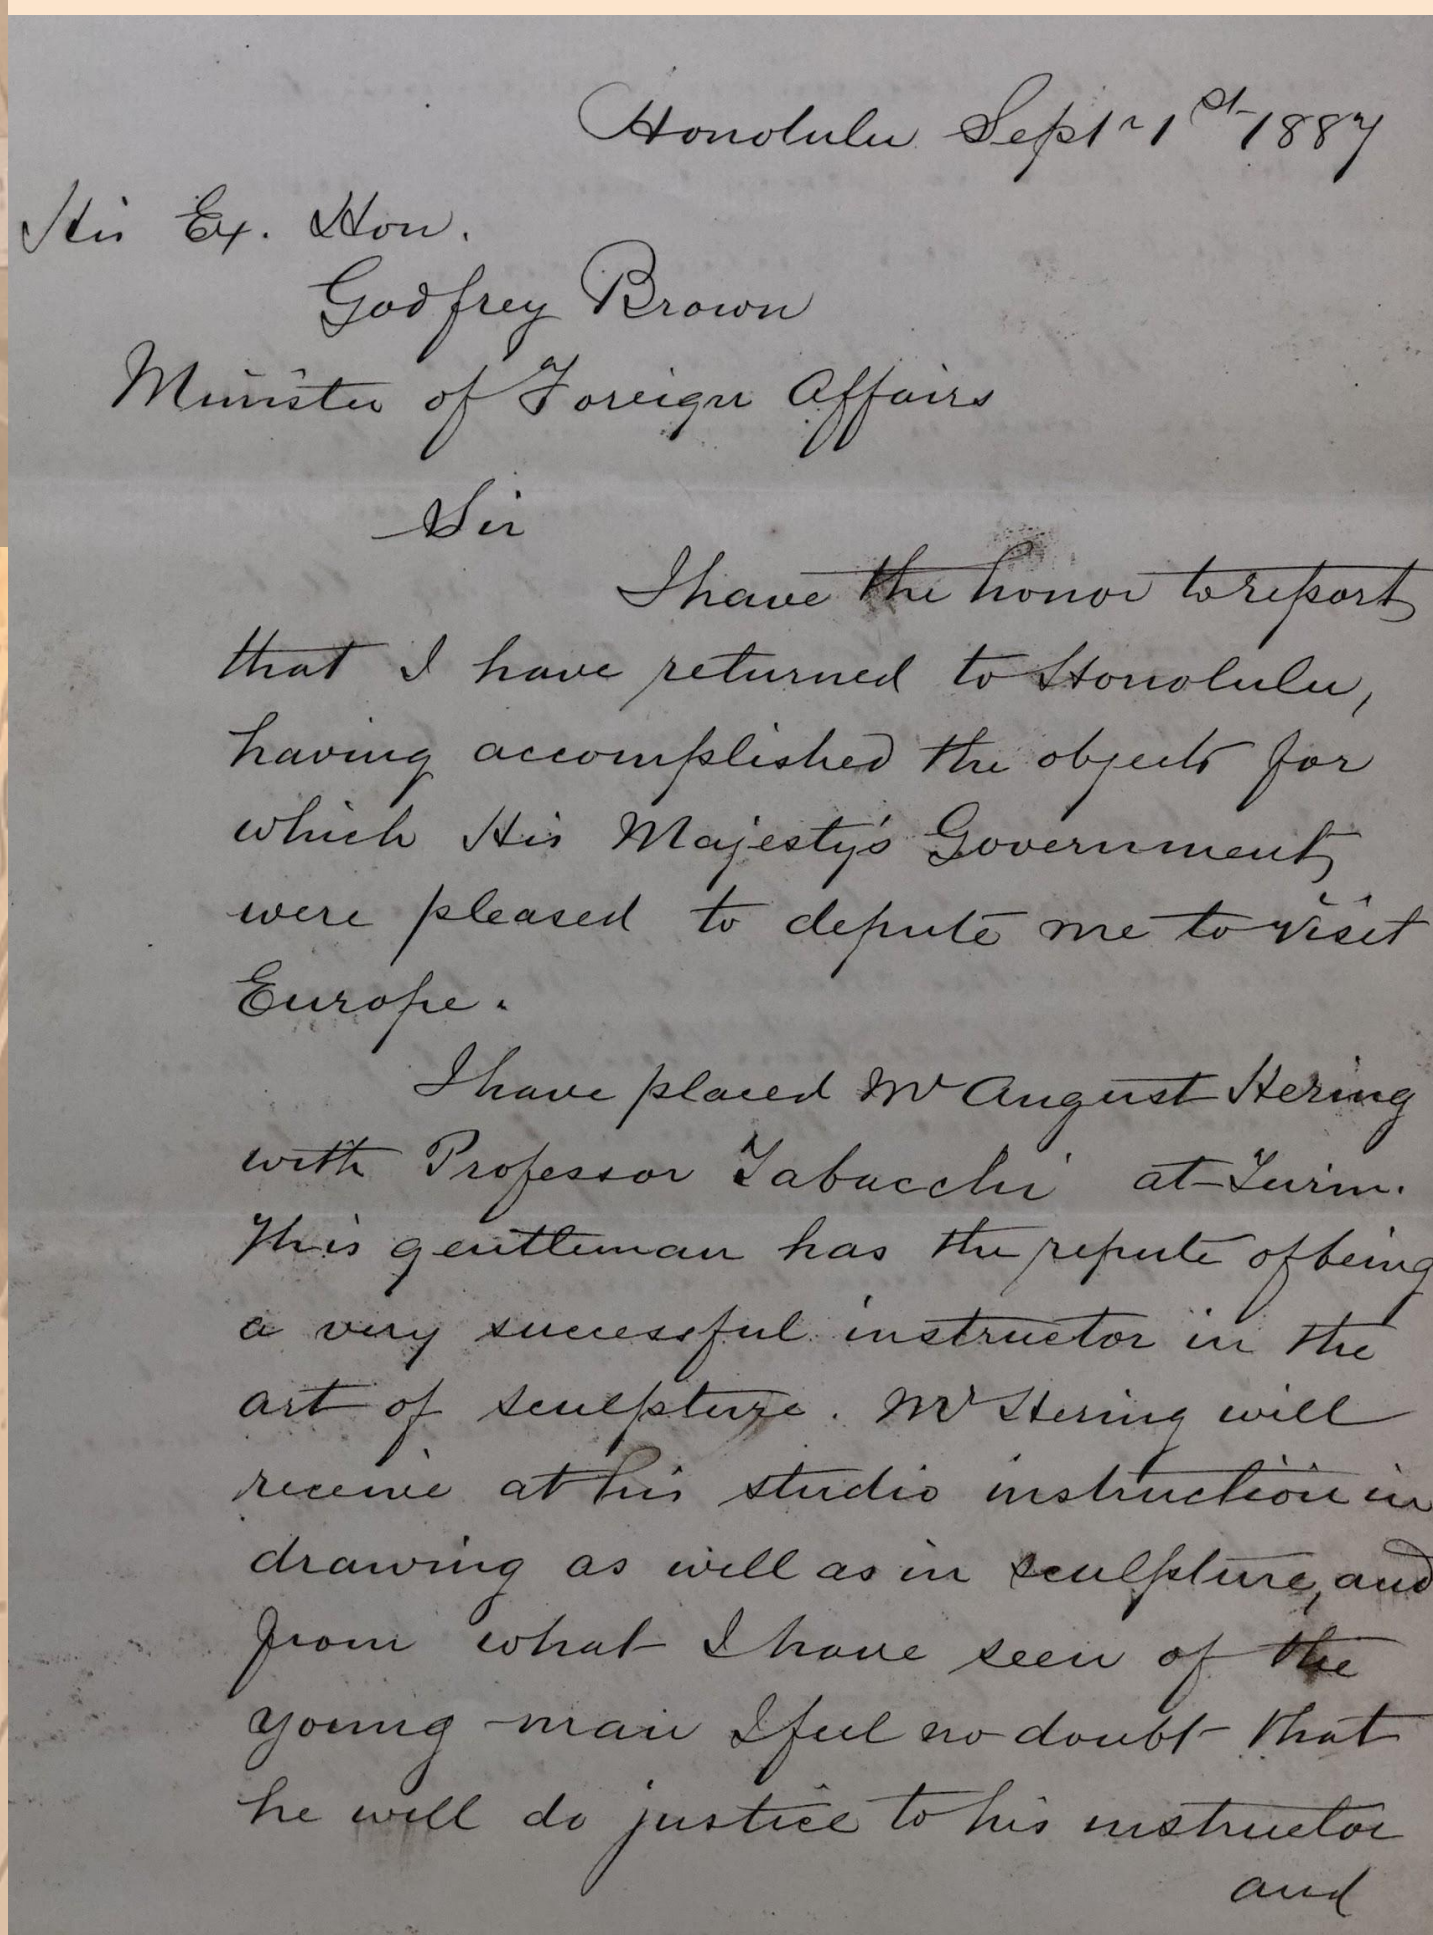 Honolulu Sept 1st 1887
His Ex. Hon.
Godfrey Brown
Minister of Foreign Affairs
Sir
I have the honor to report
that I have returned to Honolulu,
having accomplished the objects for
which His Majesty's Government
were pleased to depute me to visit
Europe.
I have placed Mr August Hering
with Professor Tabacchi at Turin.
This gentleman has the repute of being
a very successful instructor in the
art of sculpture. Mr Hering will
receive at his studio instruction in
drawing as well as in sculpture, and
from what I have seen of the
young man I feel no doubt that
he will do justice to his instructor
and